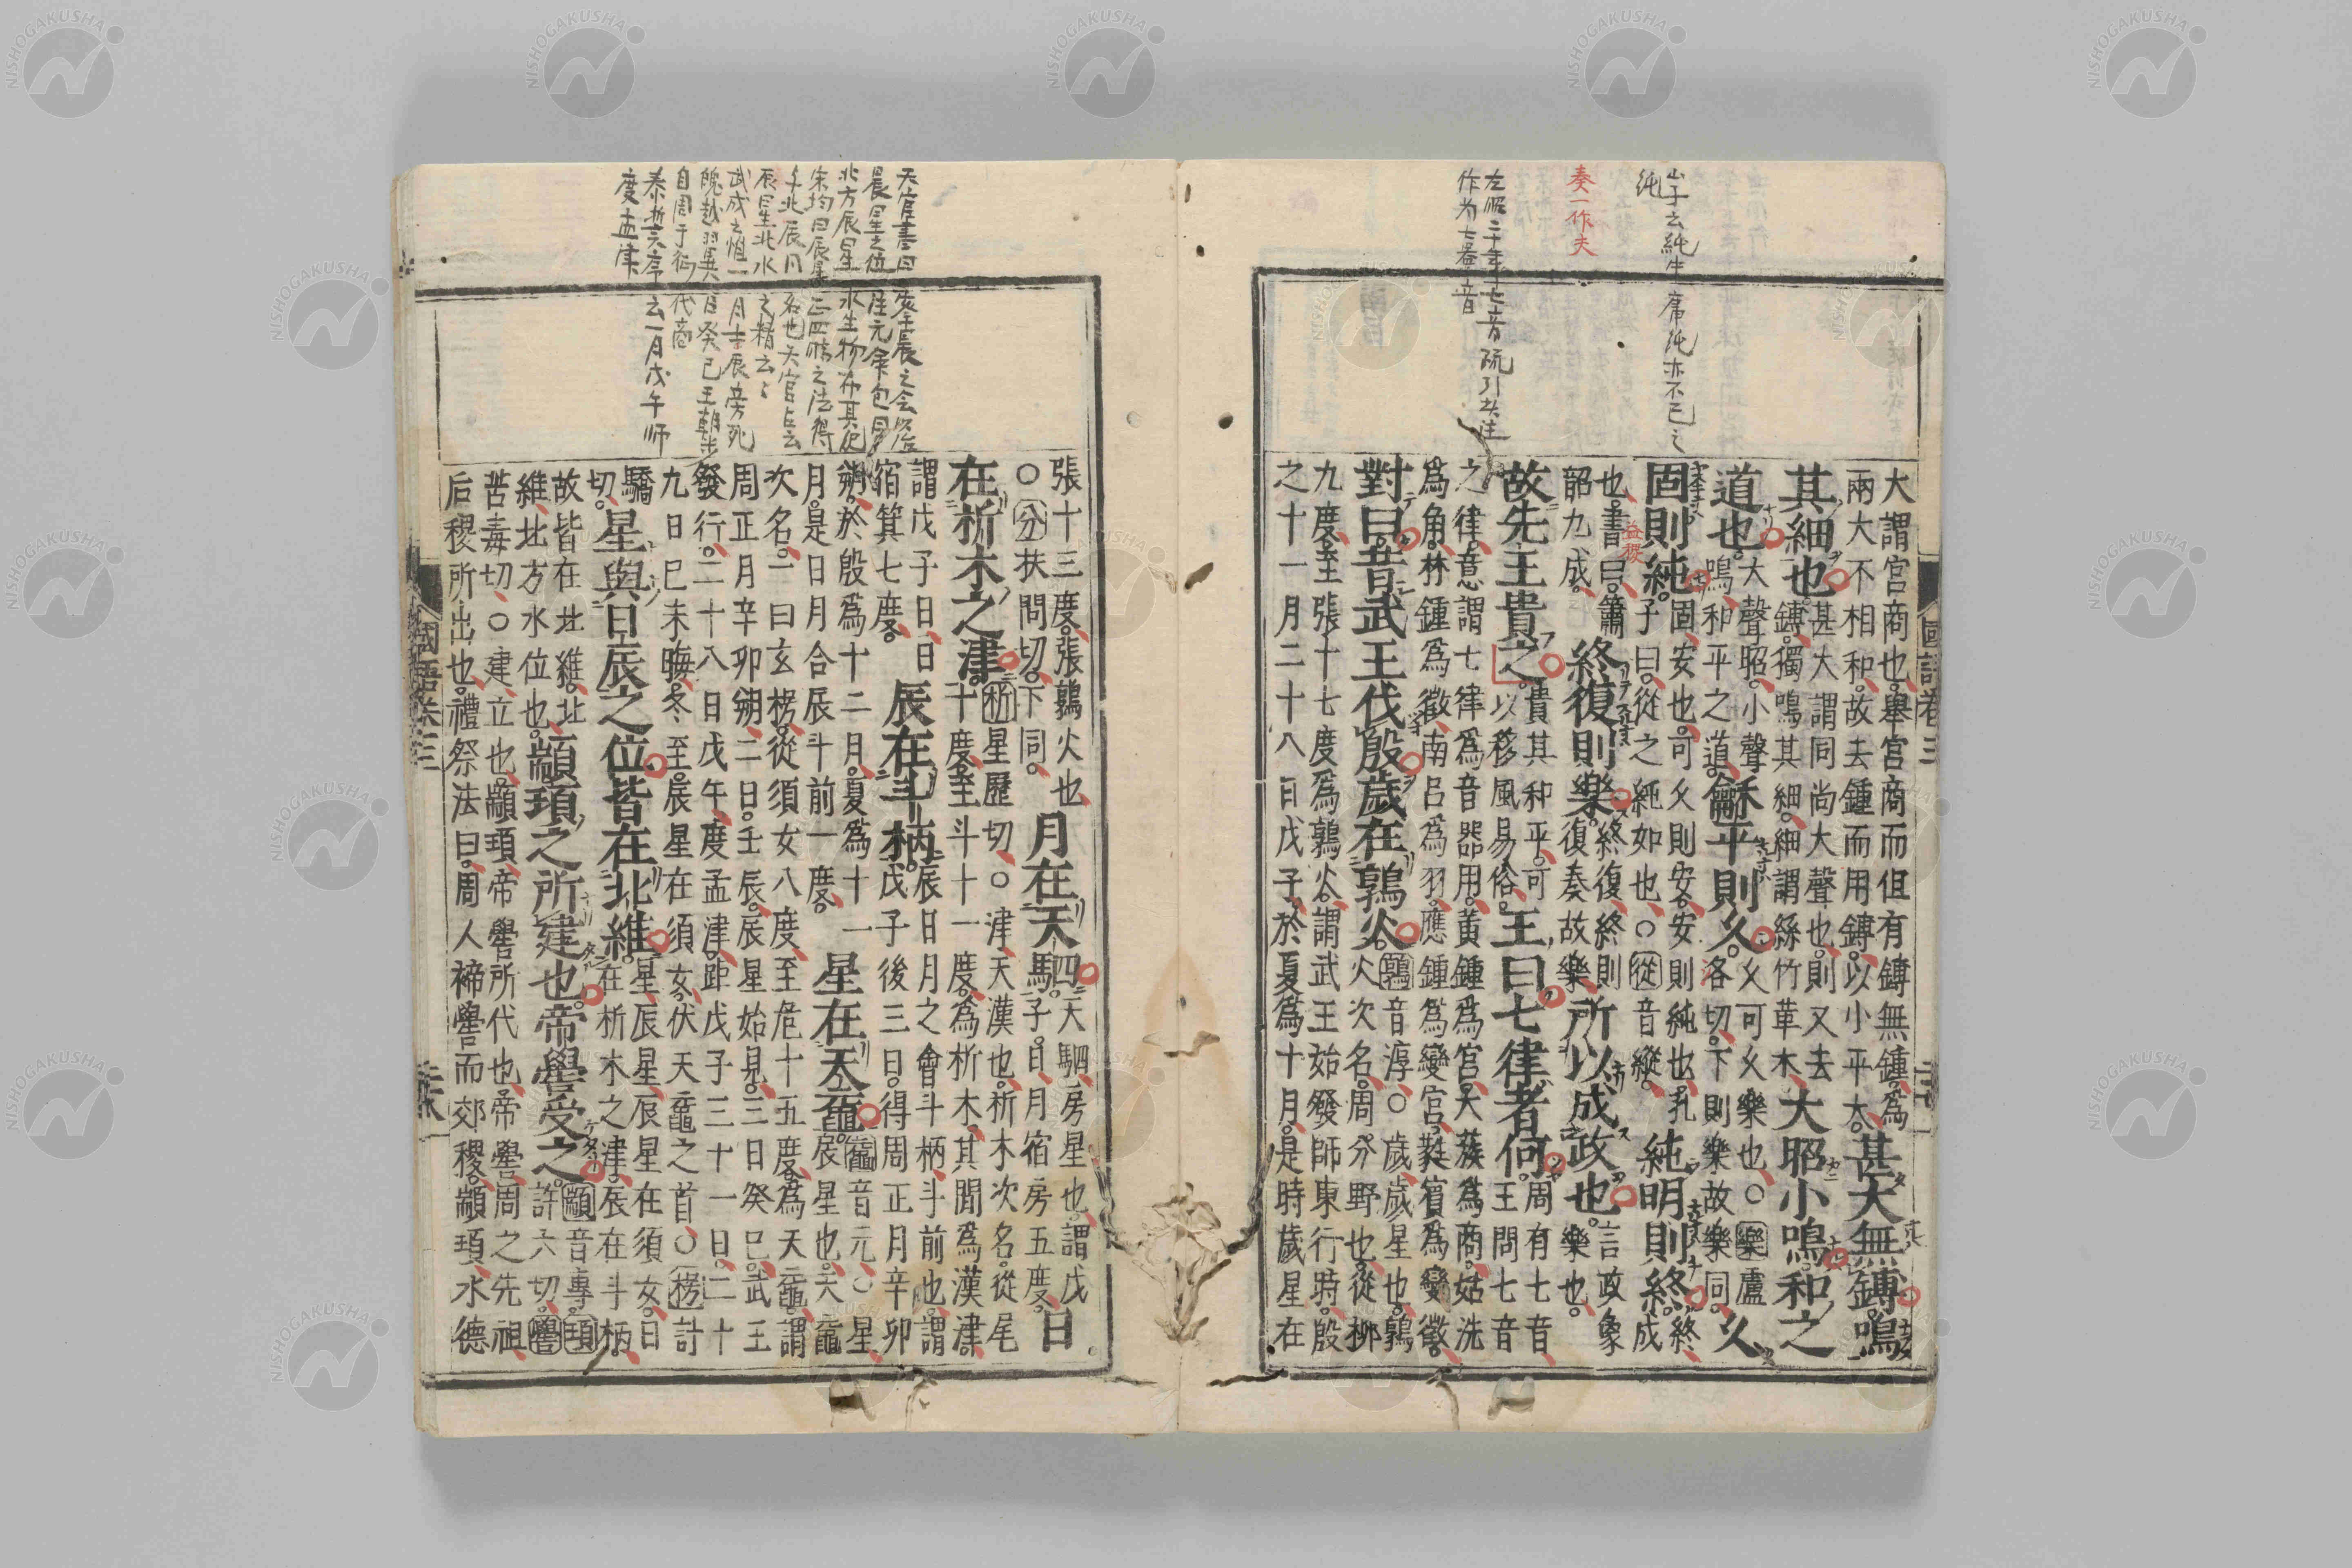 山子云純生席純亦不已之
純
奏一作夫
左昭二十年七音疏引此注
作为七器音
益稷
大謂宮商也舉宮商而但有鎛無鍾爲
兩大不相和故去鍾而用鎛以小平大
甚大無鎛鳴
其細也
甚大謂同尚大聲也則又去
鎛獨鳴其細細謂絲竹革木
大昭小鳴和之
道也
大聲昭小聲
鳴和平之道
龢平則久
久可久樂也○樂盧
各切下則樂故樂同
久
固則純
固安也可久則安安則純也孔
子曰從之純如也○從音縱
純明則終
終
成
也書曰簫
韶九成
終復則樂
終復終則
復奏故樂
所以成政也
言政象
樂也
故先王貴之
貴其和平可
以移風易俗
王曰七律者何
周有七音
王問七音
之律意謂七律爲音器用黃鍾爲宮大蔟爲商姑洗
爲角林鍾爲徵南呂爲羽應鍾爲變宮蕤賓爲變徵
對曰昔武王伐殷歲在鶉火
鶉音淳○歲歲星也鶉
火次名周分野也從柳
九度至張十七度爲鶉火謂武王始發師東行時殷
之十一月二十八日戊子於夏爲十月是時歲星在
國語卷三
天官書曰
晨星之位
北方辰星水生物布其紀
辰星北水之精云々
武成之惟一月壬辰旁死
魄越翼日癸巳王朝步
自周于征伐商
泰誓序云一月戊午師
度孟津
張十三度張鶉火也
○分扶問切下同
月在天駟
天駟房星也謂戊
子日月宿房五度
日
在析木之津
析星歷切○津天漢也析木次名從尾
十度至斗十一度為析木其閒為漢津
謂戊子日日
宿箕七度
辰在斗柄
辰日月之會斗柄斗前也謂
戊子後三日得周正月辛卯
朔於殷為十二月夏為十一
月是日月合辰斗前一度
星在天黿
黿音元○星
辰星也天黿
次名一曰玄枵從須女八度至危十五度為天黿謂
周正月辛卯朔二日壬辰辰星始見三日癸巳武王
發行二十八日戊午度孟津距戊子三十一日二十
九日巳未晦冬至辰星在須女伏天黿之首○枵計
驕
切
星與日辰之位皆在北維
星辰星辰星在須女日
在析木之津辰在斗柄
故皆在北維北
維北方水位也
顓頊之所建也帝嚳受之
顓音專頊
許六切嚳
苦毒切○建立也顓頊帝嚳所代也帝嚳周之先祖
后稷所出也禮祭法曰周人禘嚳而郊稷顓頊水德
國語卷三
NISHOGAKUSHA